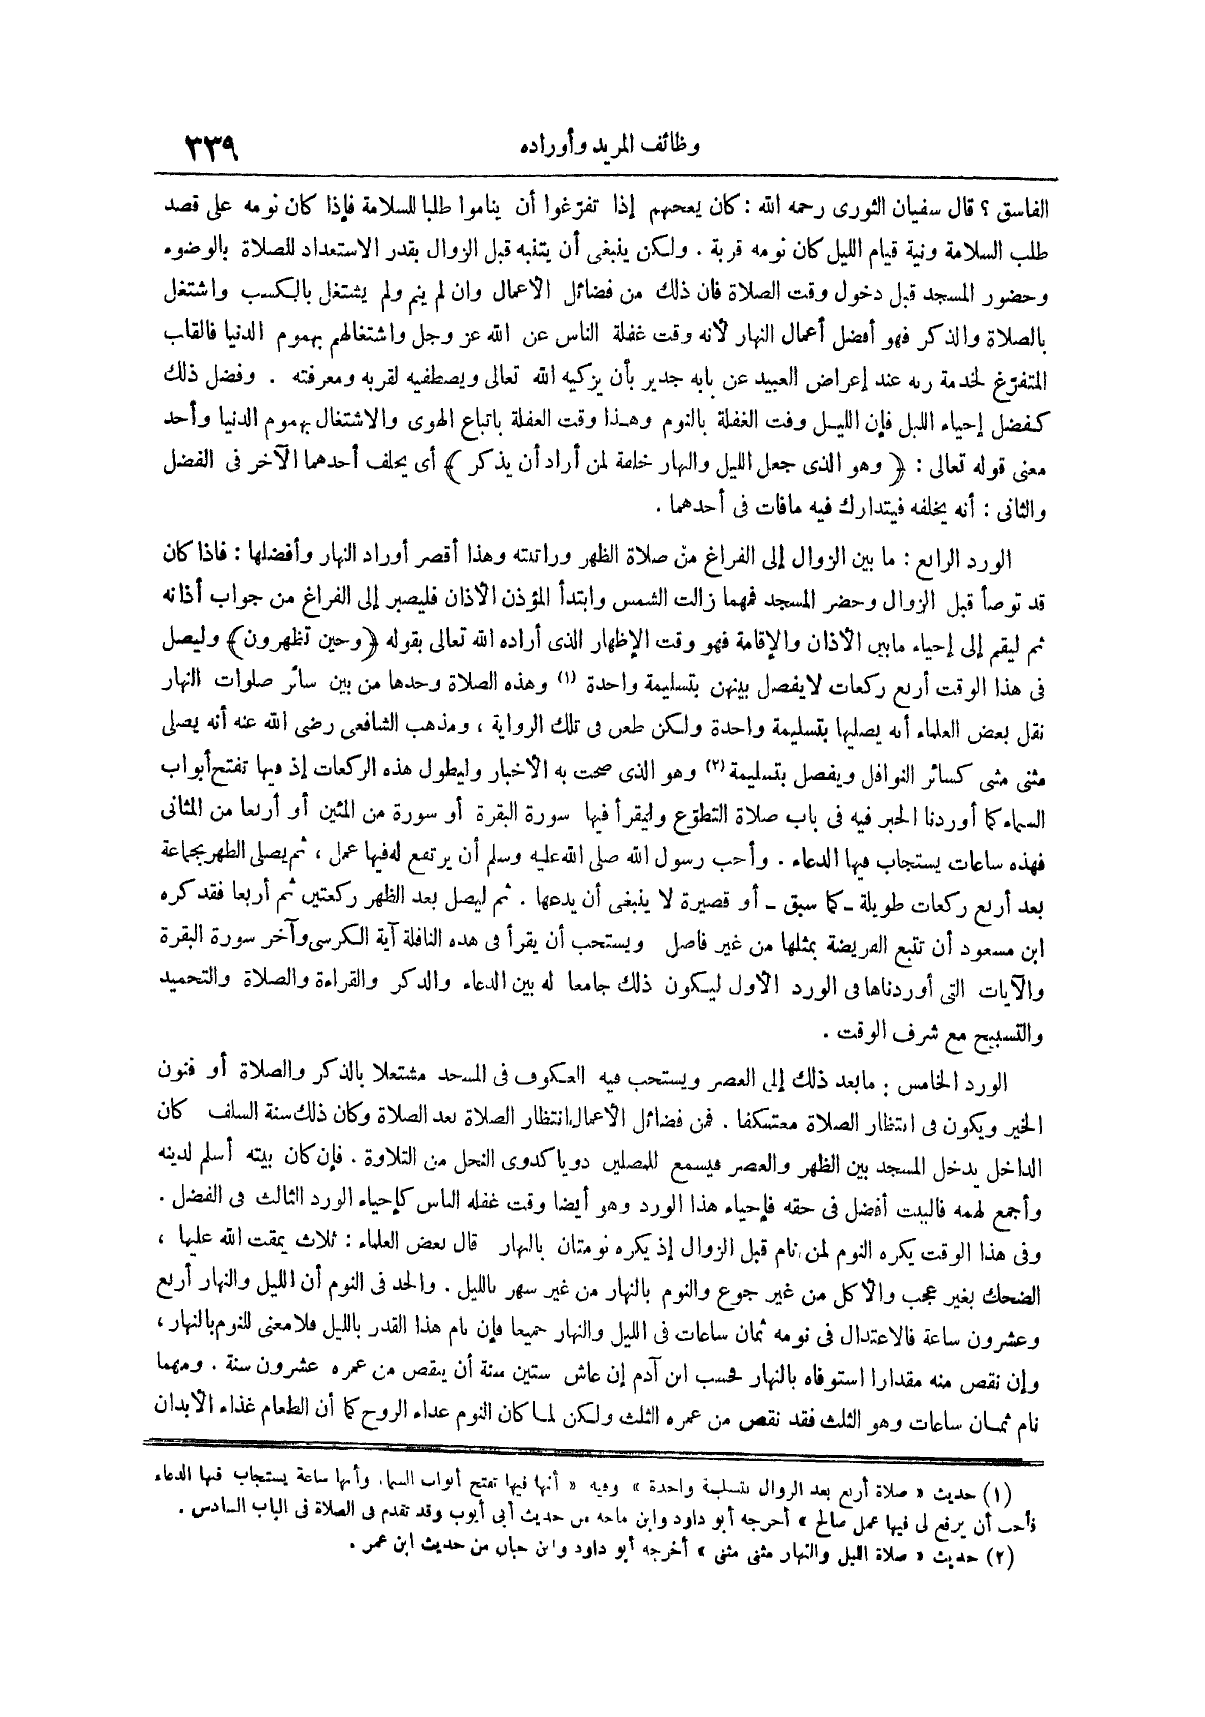 وظائف المريد وأوراده
٣٣٩
الفاسق ؟ قال سفيان الثورى رحمه الله : كان يعجبهم إذا تفرّغوا أن يناموا طلبا للسلامة فإذا كان نومه على قصد
طلب السلامة ونية قيام الليل كان نومه قربة . ولكن ينبغى أن يتنبه قبل الزوال بقدر الاستعداد للصلاة بالوضوء
وحضور المسجد قبل دخول وقت الصلاة فان ذلك من فضائل الأعمال وان لم ينم ولم يشتغل بالكسب واشتغل
بالصلاة والذكر فهو أفضل أعمال النهار لأنه وقت غفلة الناس عن الله عز وجل واشتغالهم بهموم الدنيا فالقلب
المتفرّغ لخدمة ربه عند إعراض العبيد عن بابه جدير بأن يزكيه الله تعالى ويصطفيه لقربه ومعرفته . وفضل ذلك
كفضل إحياء الليل فإن الليل وقت الغفلة بالنوم وهذا وقت الغفلة باتباع الهوى والاشتغال بهموم الدنيا وأحد
معنى قوله تعالى : ﴿ وهو الذى جعل الليل والنهار خلفة لمن أراد أن يذكر ﴾ أى يخلف أحدهما الآخر فى الفضل
والثانى : أنه يخلفه فيتدارك فيه مافات فى أحدهما .
الورد الرابع : ما بين الزوال إلى الفراغ من صلاة الظهر وراتبته وهذا أقصر أوراد النهار وأفضلها : فاذا كان
قد توضأ قبل الزوال وحضر المسجد فمهما زالت الشمس وابتدأ المؤذن الأذان فليصبر إلى الفراغ من جواب أذانه
ثم ليقم إلى إحياء مابين الأذان والإقامة فهو وقت الإظهار الذى أراده الله تعالى بقوله ﴿وحين تظهرون﴾ وليصل
فى هذا الوقت أربع ركعات لايفصل بينهن بتسليمة واحدة (١) وهذه الصلاة وحدها من بين سائر صلوات النهار
نقل بعض العلماء أنه يصليها بتسليمة واحدة ولكن طعن فى تلك الرواية ، ومذهب الشافعى رضى الله عنه أنه يصلى
مثنى مثنى كسائر النوافل ويفصل بتسليمة (٢) وهو الذى صحت به الأخبار وليطول هذه الركعات إذ فيها تفتح أبواب
السماء كما أوردنا الخبر فيه فى باب صلاة التطوّع وليقرأ فيها سورة البقرة أو سورة من المئين أو أربعا من المثانى
فهذه ساعات يستجاب فيها الدعاء . وأحب رسول الله صلى الله عليه وسلم أن يرتفع له فيها عمل ، ثم يصلى الظهر بجماعة
بعد أربع ركعات طويلة ـ كما سبق ـ أو قصيرة لا ينبغى أن يدعها . ثم ليصل بعد الظهر ركعتين ثم أربعا فقد كره
ابن مسعود أن تتبع الفريضة بمثلها من غير فاصل ويستحب أن يقرأ فى هذه النافلة آية الكرسى وآخر سورة البقرة
والآيات التى أوردناها فى الورد الأول ليكون ذلك جامعا له بين الدعاء والذكر والقراءة والصلاة والتحميد
والتسبيح مع شرف الوقت .
الورد الخامس : مابعد ذلك إلى العصر ويستحب فيه العكوف فى المسجد مشتغلا بالذكر والصلاة أو فنون
الخير ويكون فى انتظار الصلاة معتكفا . فمن فضائل الأعمال انتظار الصلاة بعد الصلاة وكان ذلك سنة السلف كان
الداخل يدخل المسجد بين الظهر والعصر فيسمع للمصلين دويا كدوى النحل من التلاوة . فإن كان بيته أسلم لدينه
وأجمع لهمه فالبيت أفضل فى حقه فإحياء هذا الورد وهو أيضا وقت غفلة الناس كإحياء الورد الثالث فى الفضل .
وفى هذا الوقت يكره النوم لمن نام قبل الزوال إذ يكره نومتان بالنهار قال بعض العلماء : ثلاث يمقت الله عليها ،
الضحك بغير عجب والأكل من غير جوع والنوم بالنهار من غير سهر بالليل . والحد فى النوم أن الليل والنهار أربع
وعشرون ساعة فالاعتدال فى نومه ثمان ساعات فى الليل والنهار جميعا فإن نام هذا القدر بالليل فلا معنى للنوم بالنهار ،
وإن نقص منه مقدارا استوفاه بالنهار فحسب ابن آدم إن عاش ستين سنة أن ينقص من عمره عشرون سنة . ومهما
نام ثمان ساعات وهو الثلث فقد نقص من عمره الثلث ولكن لما كان النوم غذاء الروح كما أن الطعام غذاء الأبدان
(١) حديث « صلاة أربع بعد الزوال بتسليمة واحدة » وفيه « أنها فيها تفتح أبواب السماء وأنها ساعة يستجاب فيها الدعاء
فأحب أن يرفع لى فيها عمل صالح » أخرجه أبو داود وابن ماجه من حديث أبى أيوب وقد تقدم فى الصلاة فى الباب السادس .
(٢) حديث « صلاة الليل والنهار مثنى مثنى » أخرجه أبو داود وابن حبان من حديث ابن عمر .